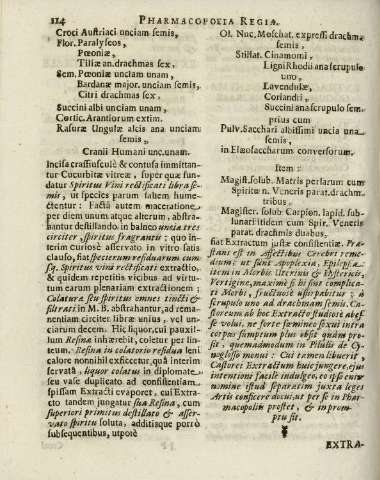 114 PHARMACOPOEIA REGIA.
Croci Austriaci unciam semis,
Flor. Paralyseos,
Pœoniæ,
Tiliæ an. drachmas sex,
Sem. Pœoniæ unciam unam,
Bardanæ major. unciam semis,
Citri drachmas sex,
Succini albi unciam unam,
Cortic. Arantiorum extim.
Rasuræ Ungulæ alcis ana unciam
semis,
Cranii Humani unc. unam.
Incisa crassiusculè & contusa immittan-
tur Cucurbitæ vitreæ, super quæ fun-
datur Spiritus Vini rectificati libra se-
mis, ut species parum saltem hume-
ctentur: Factâ autem maceratione
per diem unum atque alterum, abstra-
hantur destillando in balneo unciæ tres
circiter, spiritus fragrantis: quo in-
terim curiosè asservato in vitro satis
clauso, fiat specierum residuarum cum
sq. Spiritus vini rectificati extractio,
& quidem repetitis vicibus ad virtu-
tum earum plenariam extractionem;
Colaturæ seu spiritus omnes tincti &
filtrati in M. B. abstrahantur, ad rema-
nentiam circiter libræ unius, vel un-
ciarum decem. Hic liquor, cui pauxil-
lum Resinæ inhærebit, coletur per lin-
teum, Resina in colatorio residua leni
calore nonnihil exsiccetur, quâ interim
servatâ, liquor colatus in diplomate
seu vase duplicato ad consistentiam
spissam Extracti evaporet, cui Extra-
cto tandem jungatur sua Resina, cum
superiori primitus destillato & asser-
vato spiritu soluta; additisque porrò
subsequentibus, utpotè
Ol. Nuc. Moschat. expressi drachma
semis,
Stillat. Cinamomi,
Ligni Rhodii ana scrupulo
uno,
Lavendulæ,
Coriandri,
Succini ana scrupulo sem.
prius cum
Pulv. Sacchari albissimi uncia una
semis,
in Elæosaccharum conversorum.
Item:
Magist. solub. Matris perlarum cum
Spiritu n. Veneris parat. drachm.
tribus,
Magister. solub Carpion. lapid. sub-
lunati itidem cum Spir. Veneris
parat. drachmis duabus,
fiat Extractum justæ consistentiæ. Præ-
stans est in Affectibus Cerebri reme-
dium: ut sunt Apoplexia, Epilepsia
item in Morbis Uterinis & Hystericis,
Vertigine, maximè si hi sint complica-
ti Morbi, fructuosè usurpabitur, à
scrupulo uno ad drachmam semis. Ca-
storeum ab hoc Extracto studiosè abes-
se volui, ne fortè fœmineo sexui intra
corpus sumptum plus obsit quàm pro-
sit, quemadmodum in Pilulis de Cy-
noglosso monui: Cui tamen libuerit
Castorei Extractum huic jungere, ejus
intentioni facilè indulgeo, eo ipse enim
nomine istud separatim juxta leges
Artis conficere docui, ut per se in Phar-
macopoliis prostet, & in prom-
ptu sit.
EXTRA-